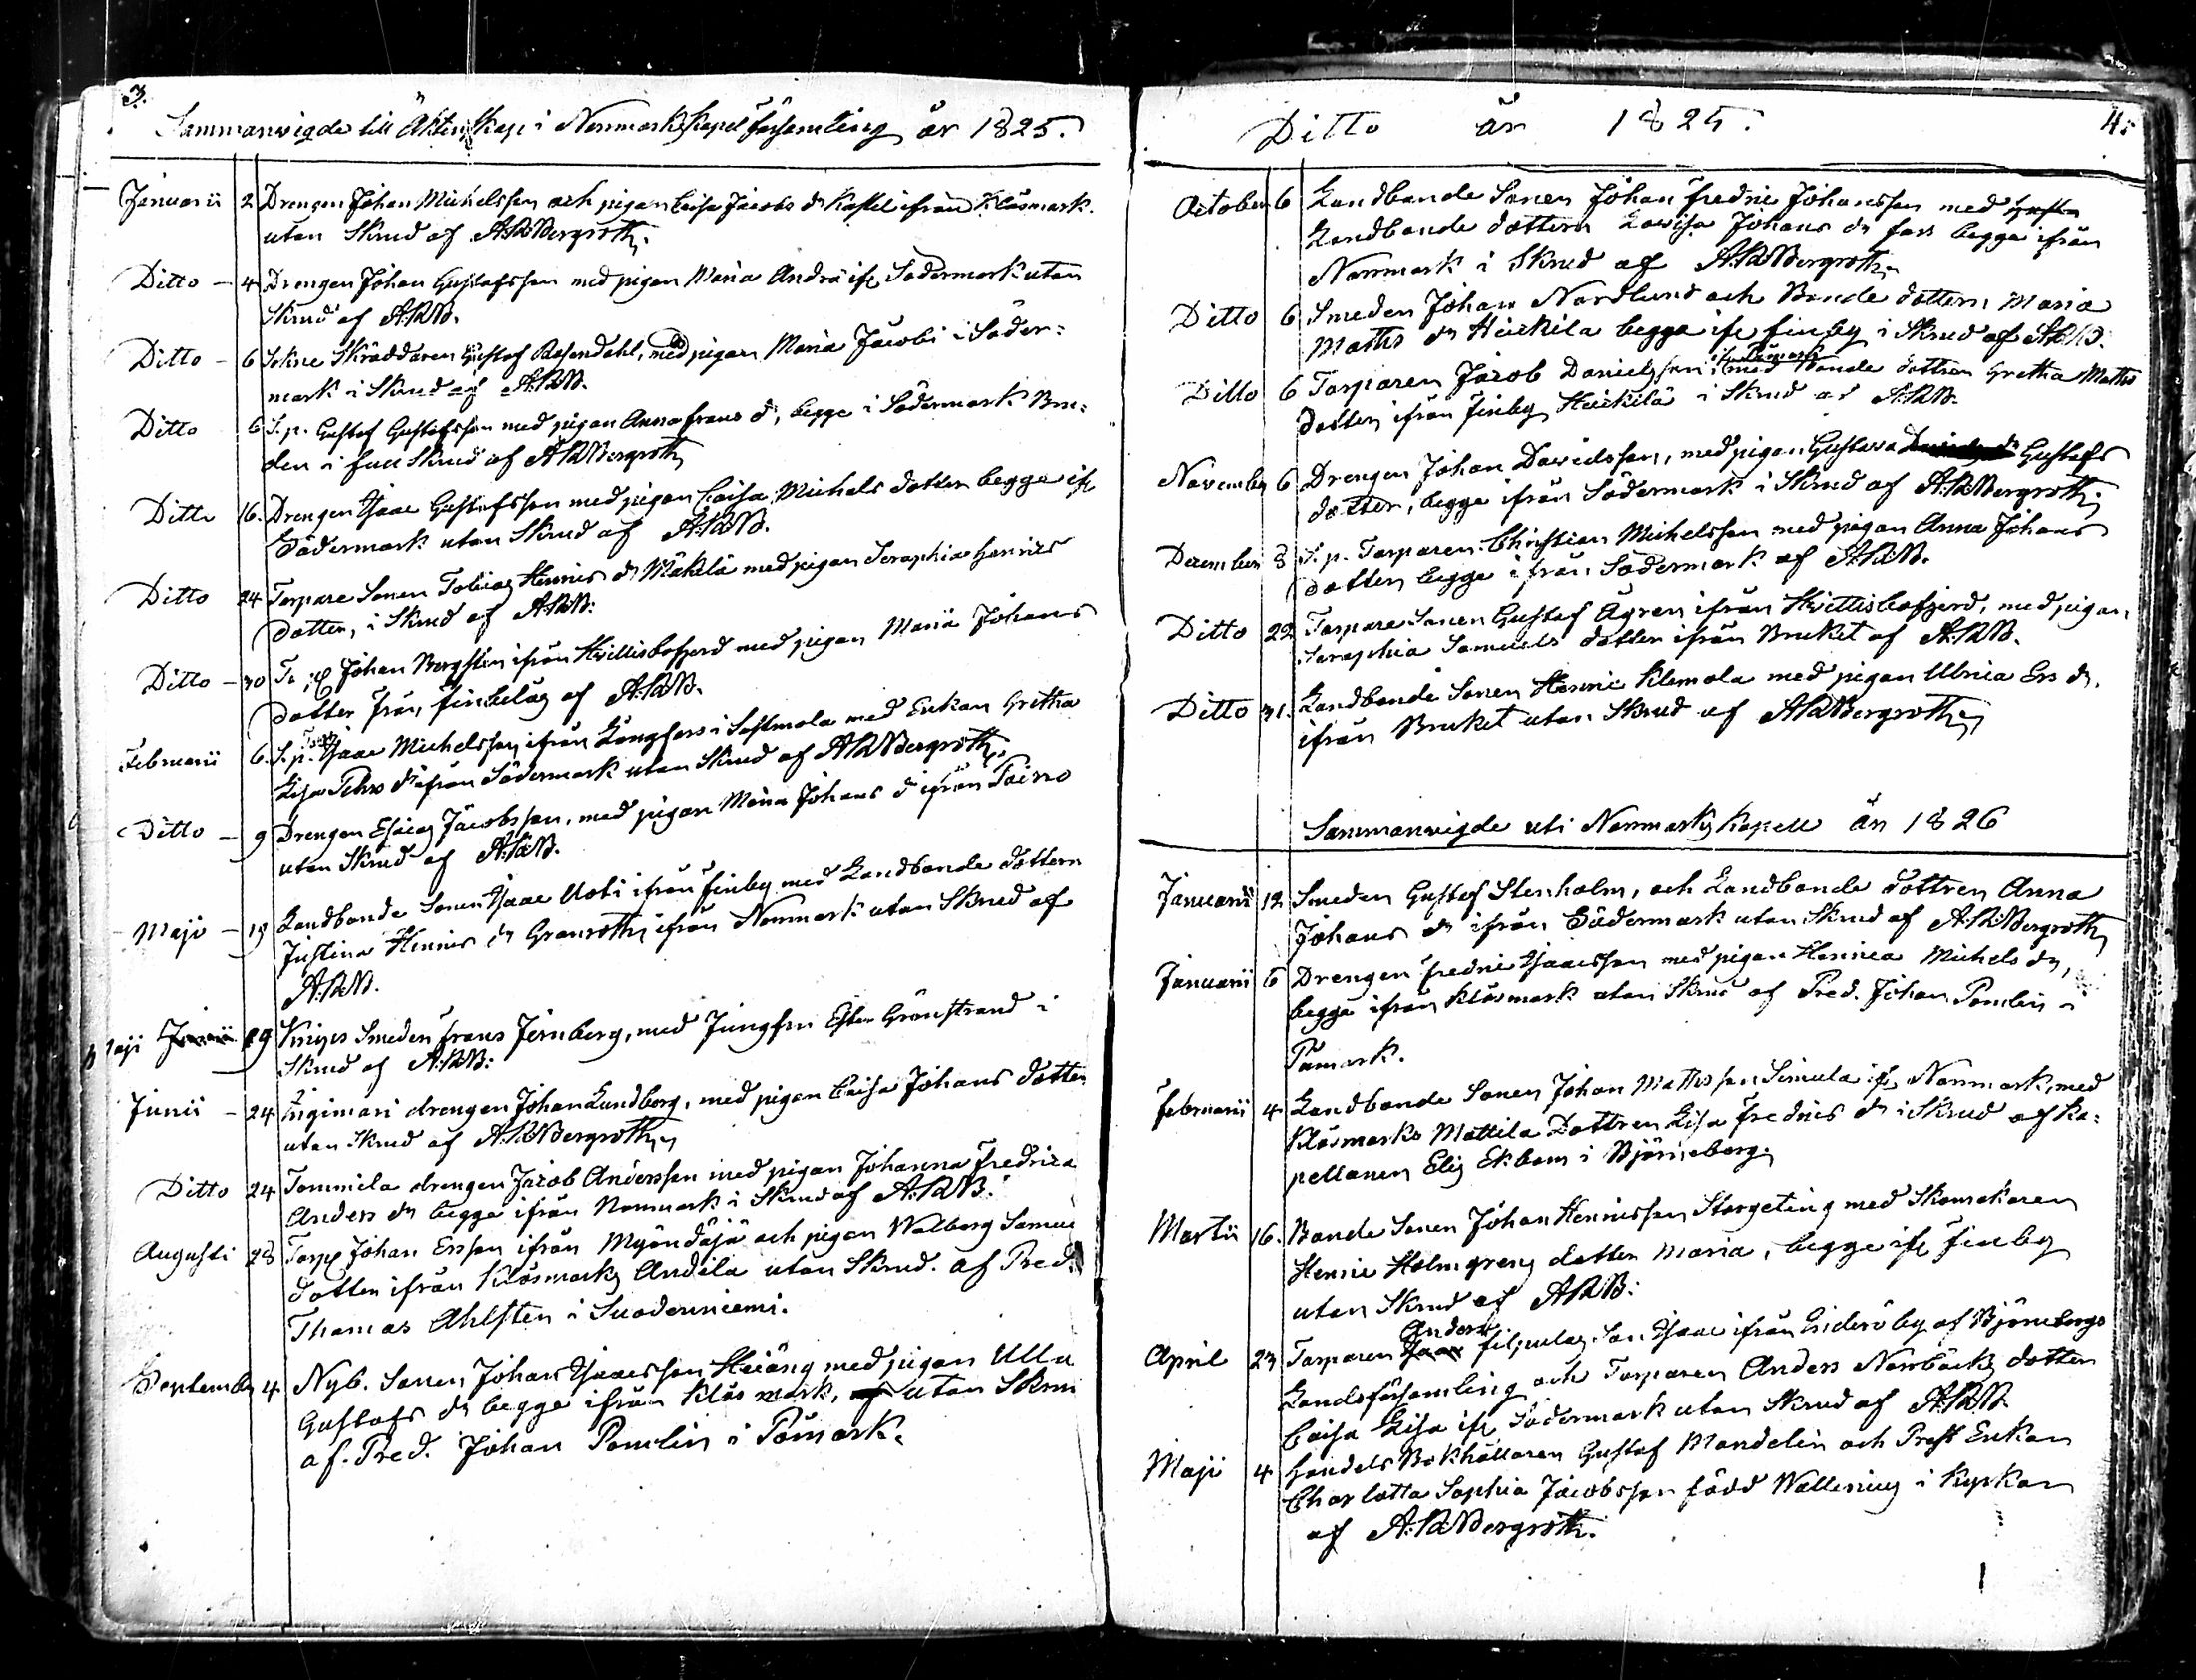 3.
Sammanwigde till Äktenskap i Norrmarks Kapel församling år 1825.
Januarii 2 Drengen Johan Michelsson och pigan Caisa Jacobs dr Kassel ifrån Klåsmark.
utan Skrud af A:RBergroth.
Ditto - 4 Drengen Johan Gustafsson med pigan Maria Andrs ifr Södermark utan
Skrud af A:RB.
Ditto - 6 Sokne Skräddaren Gustaf Rosendahl, med pigan Maria Jacobi i Söder=
mark i Skrud af A:RB.
Ditto 6 S.p. Gustaf Gustafsson med pigan Anna Frans d, begge i Södermark Bru=
den i full Skrud af A:RBergroth
Ditto 16. Drengen Isaac Gustafsson med pigan Caisa Michels dotter begge ifr
Södermark utan Skrud af A:RB.
Ditto 24 Torpare Sonen Tobias Henrics dr Mäkilä med pigan Seraphia Henrics
dotter, i Skrud af A:RB:
Ditto - 30 Johan Bergsten ifrån Hvittisbofjerd med pigan Maria Johans
dotter från, Finbelås af A:RB.
Februarii 6. S.p. Isaac Michelsson ifrån Långfors i Sastmola med Enkan Gretha
Lisa Pehrs dr ifrån Södermark utan Skrud af A:RBergroth.
Ditto - 9 Drengen Esaias Jacobsson, med pigan Maria Johans d ifrån Poirro
utan Skrud af A:RB.
Maji - 19 Landbonde Sonen Isaac Uoti ifrån Finby med Landbonde dottern
Justina Henrics dr Granroth ifrån Norrmark utan Skrud af
A:RB.
Maji Junii 29 Knipes Smeden Frans Jernberg, med Jungfrun Ester Grönstrand i
Skrud af A:RB:
Junii - 24 Ingimari drengen Johan Lundborg, med pigan Caisa Johans dotter
utan Skrud af A:RBergroth
Ditto 24 Tommila drengen Jacob Andersson med pigan Johanna Fredrica
Anders dr begge ifrån Norrmark i Skrud af A:RB.
Augusti 28 Torp Johan Ersson ifrån Myöndäjä och pigan Walborg Samuels
dotter ifrån Klåsmarks Andila utan Skrud. af Pred.
Thomas Ahlsten i Suodenniemi.
September 4 Nyb. Sonen Johan Isaacsson Heiäng med pigan Ulla
Gustafs dr begge ifrån Klåsmark, utan Skrud
af. Pred. Johan Pomelin i Påmark.
4.
Ditto år 1825.
October 6 Landbonde Sonen Johan Fredric Johansson med
Landbonde dottern Lovisa Johans dr Fors begge ifrån
Norrmark i Skrud af A:RBergroth
Ditto 6 Smeden Johan Nordlund och Bonde dottern Maria
Matts dr Heickilä begge ifr Finby i Skrud af A:RB.
Ditto 6 Torparen Jacob Danielsson ifr Påmark med Bonde dottren Gretha Matts
dotter ifrån Finby Heickilä i Skrud af A:RB.
November 6 Drengen Johan Davidsson, med pigan Gustava Gustafs
dotter, begge ifrån Södermark i Skrud af A:RBergroth
December 8 S.p. Torparen Christian Michelsson med pigan Anna Johans
dotter begge ifrån Södermark af A:RB.
Ditto 22 Torpare Sonen Gustaf Ågren ifrån Hvittisbofjerd, med pigan
Seraphia Samuels dotter ifrån Bruket af A:RB.
Ditto 31. Landbonde Sonen Henric Klemola med pigan Ulrica Ers dr.
ifrån Bruket utan Skrud af A:RBergroth
Sammanwigde uti Norrmarks Kapell år 1826
Januarii 12 Smeden Gustaf Stenholm, och Landbonde dottren Anna
Johans dr ifrån Södermark utan Skrud af A:RBergroth
Januarii 6 Drengen Fredric Isaacsson med pigan Henrica Michels dr,
begge ifrån Klåsmark utan Skrud af Pred. Johan Pomelin i
Påmark.
Februarii 4 Landbonde Sonen Johan Mattsson Simula ifr Norrmark, med
Klåsmarks Mattila Dottren Lisa Fredrics dr i Skrud af Ka=
pellanen Elis Ekbom i Björneborg.
Martii 16. Bonde Sonen Johan Henricsson Storgeting med Skomakaren
Henric Holmgrens dotter Maria, begge ifr Finby
utan Skrud af A:RB:
April 23 Torparen Anders Filpulas Son Isaac ifrån Enderöby af Björneborgs
Landsförsamling och Torparen Anders Norrbäcks dotter
Caisa Lisa ifr Södermark utan Skrud af A:RB
Maji 4 Handels Bokhållaren Gustaf Mandelin och Prost Enkan
Charlotta Sophia Jacobsson född Wallenius i Kyrkan
af A:RBergroth.